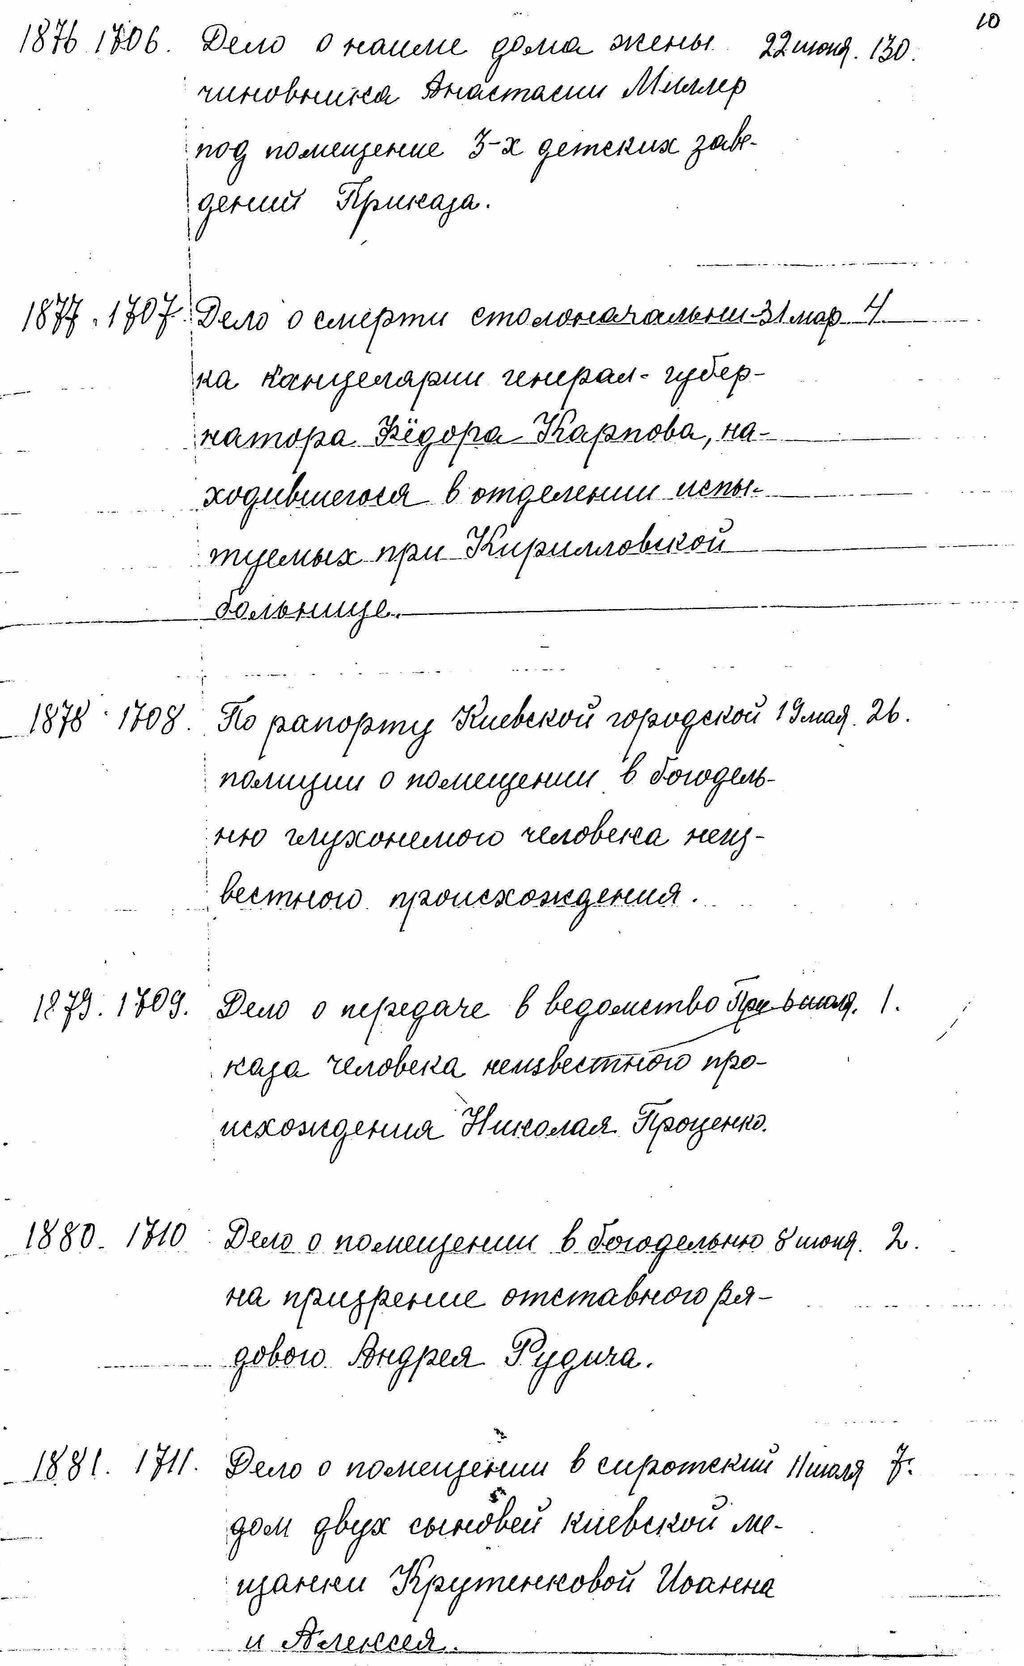 10
1876 1706. Дело о найме дома жены 22 июня. 130.
чиновника Анастасии Миллер
под помещение 3-х детских заве-
дений Приказа.
1877. 1707 Дело о смерти столоначальни- 31 мар 4
ка канцелярии генерал-губер-
натора Фёдора Карпова, на-
ходившегося в отделении испы-
туемых при Кирилловской
больнице.
1878 1708. По рапорту Киевской городской 19 мая. 26.
полиции о помещении в богодель-
ню глухонемого человека неиз-
вестного происхождения.
1879. 1709. Дело о передаче в ведомство При- 6 июля. 1.
каза человека неизвестного про-
исхождения Николая Проценко.
1880. 1710 Дело о помещении в богодельню 8 июня. 2.
на призрение отставного ря-
дового Андрея Рудича.
1881. 1711. Дело о помещении в сиротский 11 июля 7.
дом двух сыновей киевской ме-
щанки Крутенковой Иоанна
и Алексея.